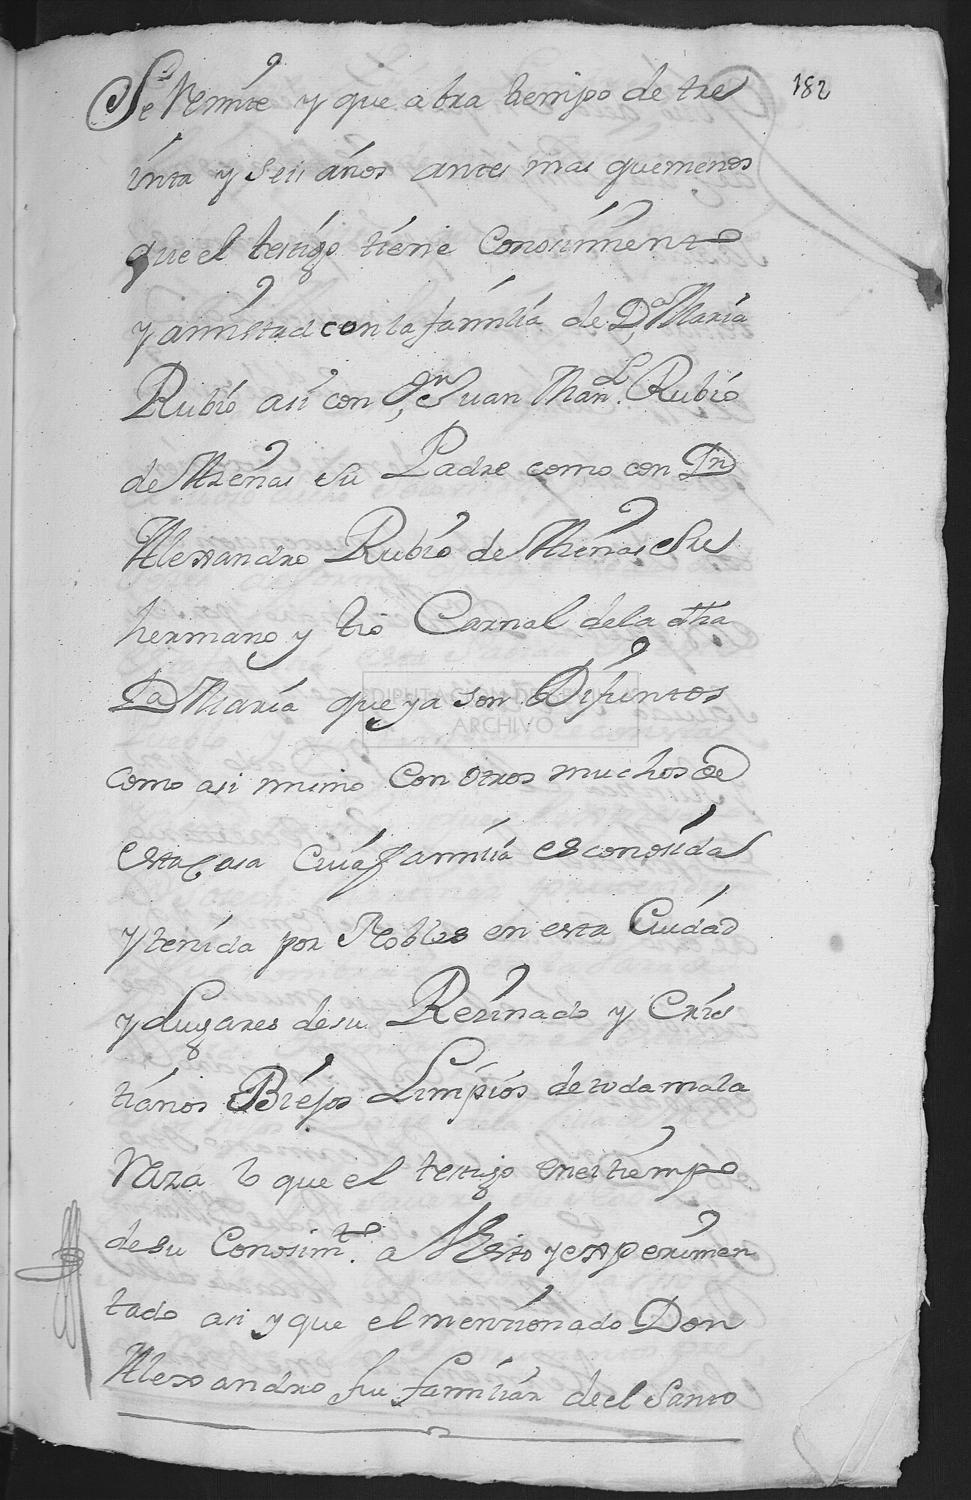 182
Se Remite y que abra tiempo de tre
inta y seis años antes mas que menos
que el testigo tiene Conosimiento
y amistad con la familia de Dª Maria
Rubio asi con Dn Juan Manl. Rubio
de Mienas su Padre como con Dn
Alexandro Rubio de Mienas Su
hermano y tio Carnal de la dha
Da Maria que ya son Difuntos
DIPUTACION DE
ARCHIVO
como asi mimo Con otros muchos de
esta Casa Cuia familia es conosida
y tenida por Nobles en esta Ciudad
y Lugares de su Reinado y Cris
tianos Biejos Limpios de toda mala
Raza lo que el testigo en el tiempo
de su Conosimto. a Visto y experimen
tado asi y que el mensionado Don
Alexandro fue familiar de el Santo